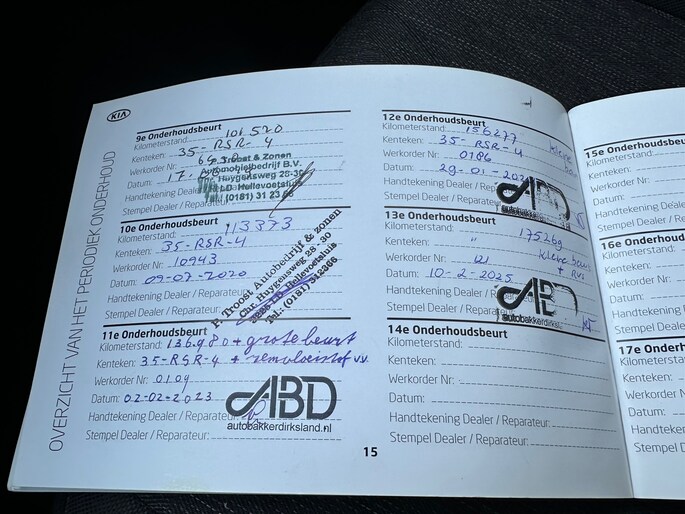 KIA
OVERZICHT VAN HET PERIODIEK ONDERHOUD
9e Onderhoudsbeurt
Kilometerstand: 101520
Kenteken: 35-RSR-4
Werkorder Nr:
Datum: 17.
Handtekening Dealer
Stempel Dealer / Rep
P. Troost & Zonen
Automobielbedrijf B.V.
Chr. Huygensweg 28-30
Hellevoetsluis
Tel. (0181) 31 23 66
10e Onderhoudsbeurt
Kilometerstand: 113373
Kenteken: 35-RSR-4
Werkorder Nr: 10943
Datum: 09-07-2020
Handtekening Dealer / Reparateur:
Stempel Dealer / Reparateur:
P. Troost Autobedrijf & zonen
Chr. Huygensweg 28 - 30
Hellevoetsluis
Tel.: (0181) 312366
11e Onderhoudsbeurt
Kilometerstand: 136980 + grote beurt
Kenteken: 35-RSR-4 + remvloeistof v.v.
Werkorder Nr: 0109
Datum: 02-02-2023
Handtekening Dealer / Reparateur:
Stempel Dealer / Reparateur:
ABD
autobakkerdirksland.nl
12e Onderhoudsbeurt
Kilometerstand: 156277 kleine
Kenteken: 35-RSR-4
Werkorder Nr: 0186
Datum: 29-01-202
Handtekening Dealer / Re
Stempel Dealer / Reparateur:
ABD
13e Onderhoudsbeurt
Kilometerstand: 175269
Kenteken: " kleine beurt
Werkorder Nr: + RVS
Datum: 10-2-2025
Handtekening Dealer / Rep
Stempel Dealer / Reparateur:
ABD
autobakkerdirksland
14e Onderhoudsbeurt
Kilometerstand:
Kenteken:
Werkorder Nr:
Datum:
Handtekening Dealer / Reparateur:
Stempel Dealer / Reparateur:
15
15e Onderhoudsbeu
Kilometerstand:
Kenteken:
Werkorder Nr:
Datum:
Handtekening Deale
Stempel Dealer / Re
16e Onderhoudsbeu
Kilometerstand:
Kenteken:
Werkorder Nr:
Datum:
Handtekening De
Stempel Dealer /
17e Onderh
Kilometersta
Kenteken:
Werkorder N
Datum:
Handtekenin
Stempel De